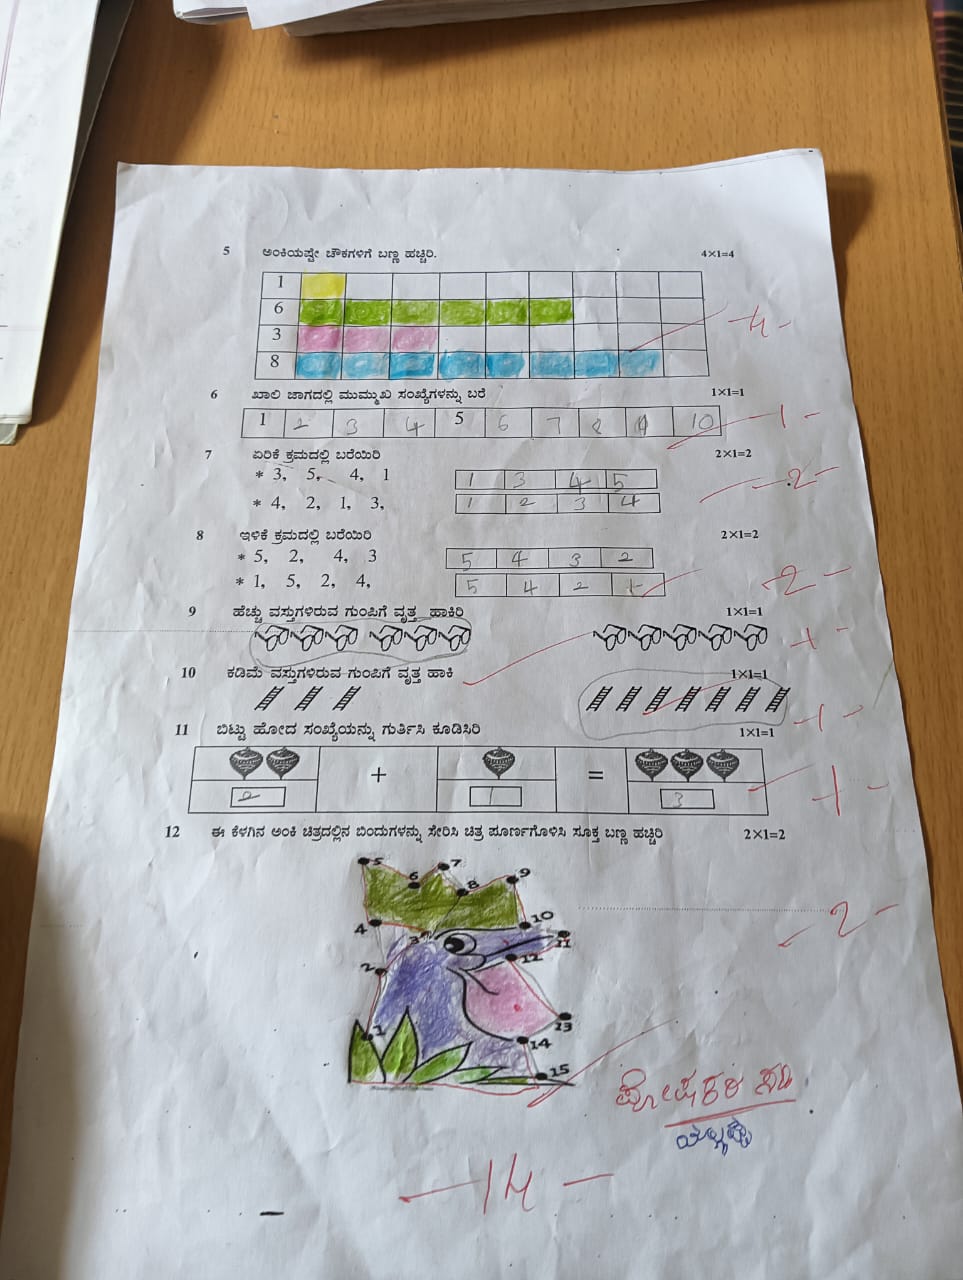 5 ಅಂಕಿಯಷ್ಟೇ ಚೌಕಗಳಿಗೆ ಬಣ್ಣ ಹಚ್ಚಿರಿ. 4×1=4
1
6
3
8
4
6 ಖಾಲಿ ಜಾಗದಲ್ಲಿ ಮುಮ್ಮುಖ ಸಂಖ್ಯೆಗಳನ್ನು ಬರೆ 1×1=1
1 2 3 4 5 6 7 8 9 10
1
7 ಏರಿಕೆ ಕ್ರಮದಲ್ಲಿ ಬರೆಯಿರಿ 2×1=2
* 3, 5, 4, 1 1 3 4 5
2
* 4, 2, 1, 3, 1 2 3 4
8 ಇಳಿಕೆ ಕ್ರಮದಲ್ಲಿ ಬರೆಯಿರಿ 2×1=2
* 5, 2, 4, 3 5 4 3 2
* 1, 5, 2, 4, 5 4 2 1
2
9 ಹೆಚ್ಚು ವಸ್ತುಗಳಿರುವ ಗುಂಪಿಗೆ ವೃತ್ತ ಹಾಕಿರಿ 1×1=1
1
10 ಕಡಿಮೆ ವಸ್ತುಗಳಿರುವ ಗುಂಪಿಗೆ ವೃತ್ತ ಹಾಕಿ 1×1=1
1
11 ಬಿಟ್ಟು ಹೋದ ಸಂಖ್ಯೆಯನ್ನು ಗುರ್ತಿಸಿ ಕೂಡಿಸಿರಿ 1×1=1
+ =
2 1 3
1
12 ಈ ಕೆಳಗಿನ ಅಂಕಿ ಚಿತ್ರದಲ್ಲಿನ ಬಿಂದುಗಳನ್ನು ಸೇರಿಸಿ ಚಿತ್ರ ಪೂರ್ಣಗೊಳಿಸಿ ಸೂಕ್ತ ಬಣ್ಣ ಹಚ್ಚಿರಿ 2×1=2
5 6 7 8 9
4 3 10 11
2
2 12
1 13
14
15
ಪೋಷಕರ ಸಹಿ
14